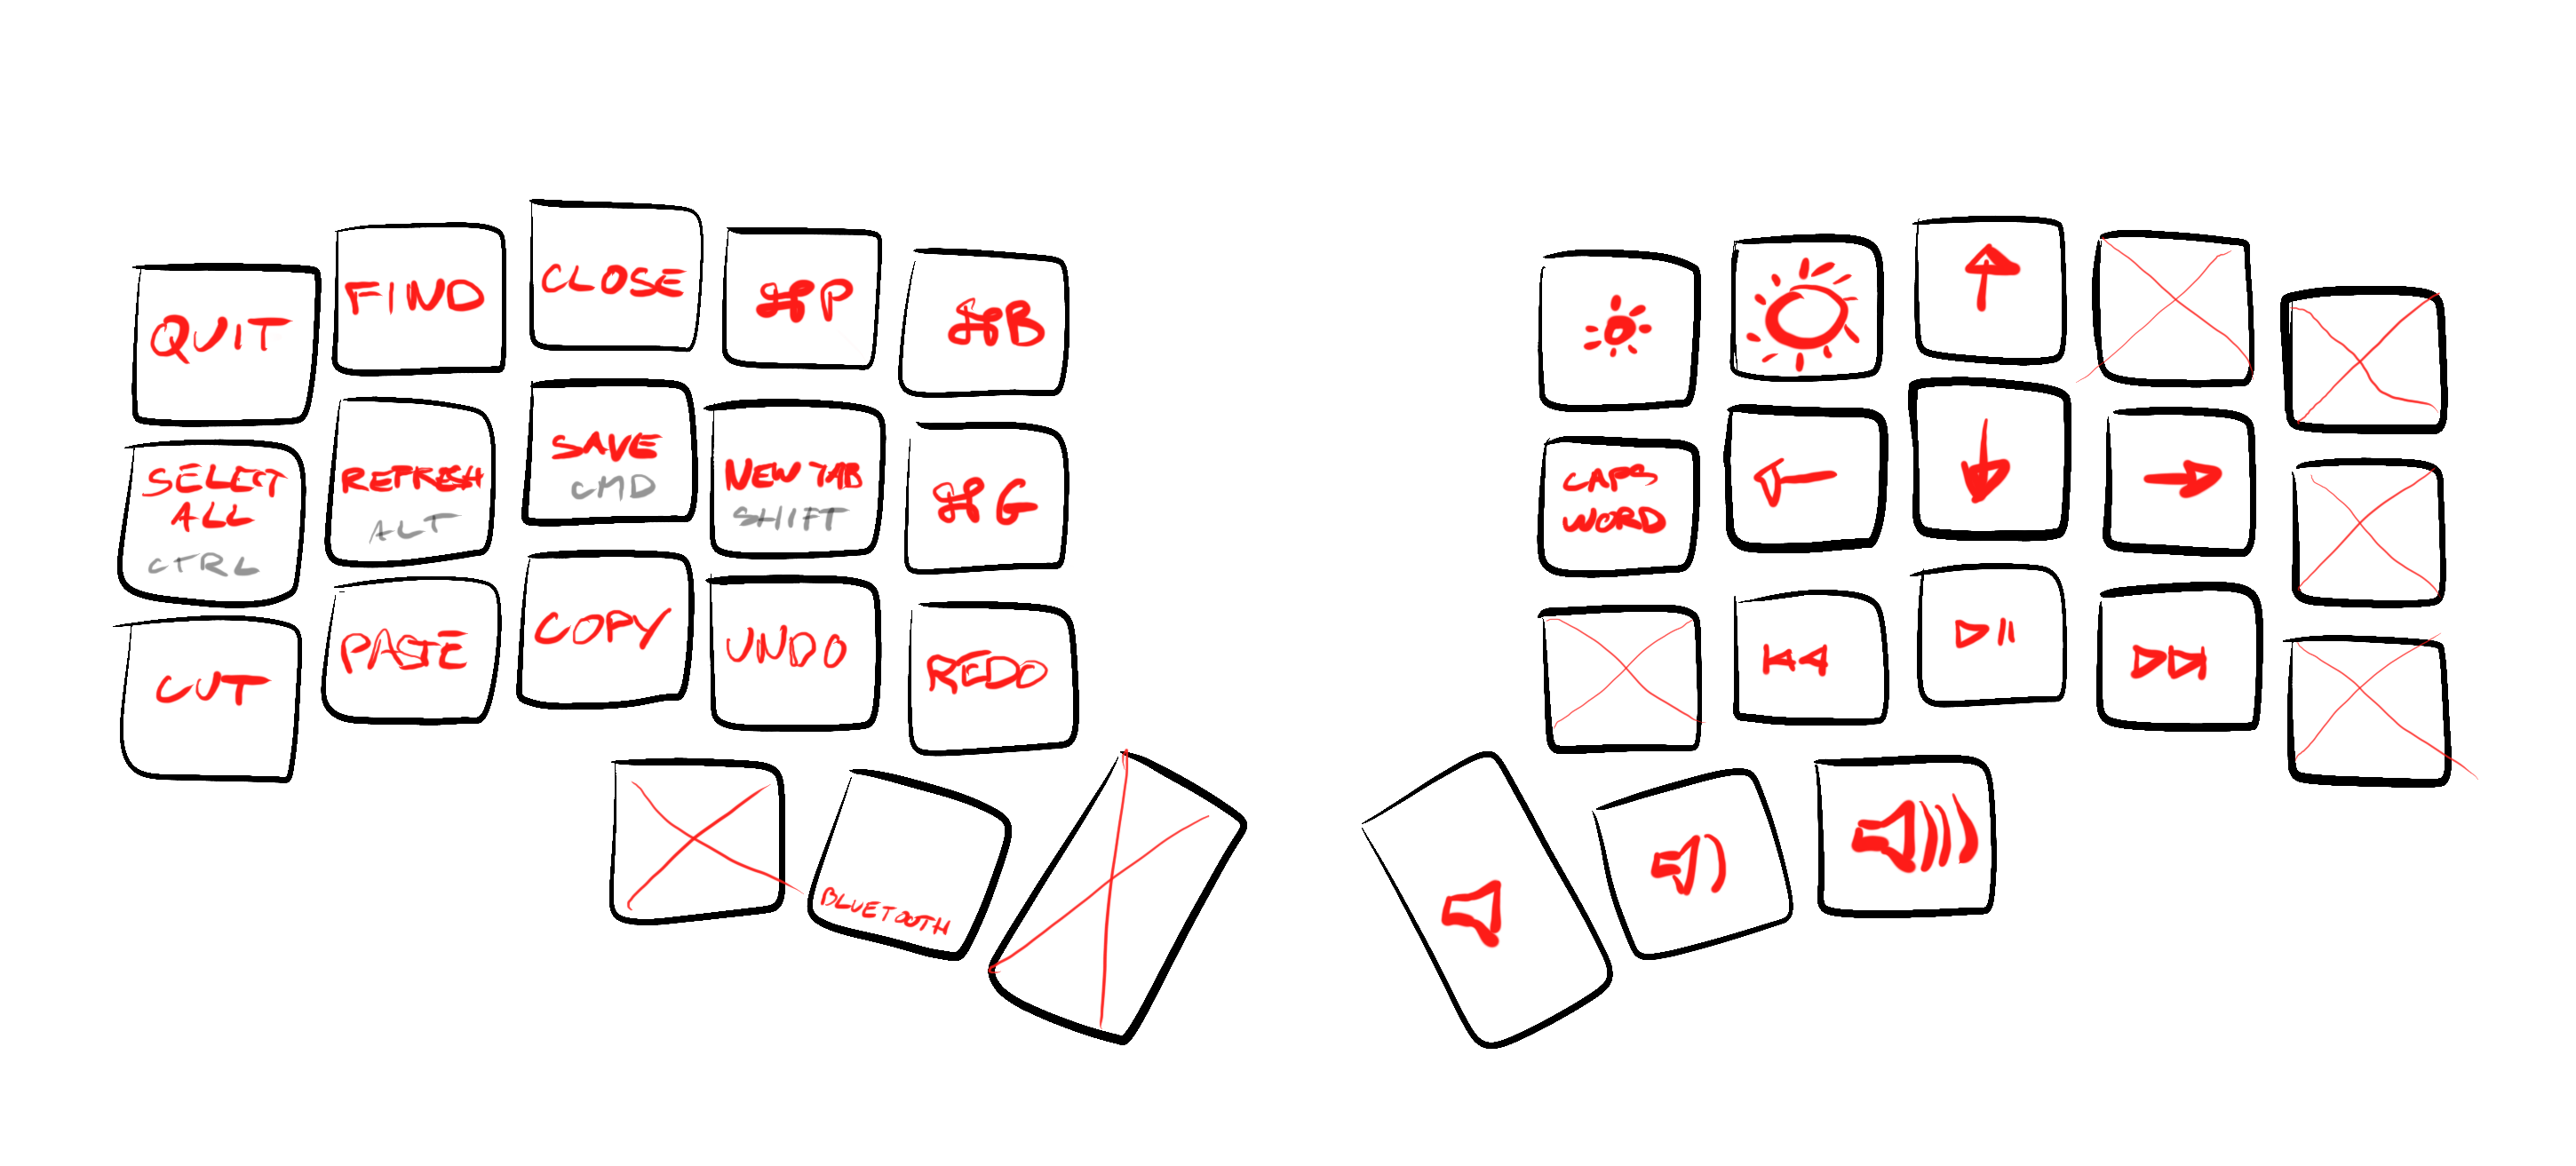 QUIT
FIND
CLOSE
⌘P
⌘B
SELECT
ALL
CTRL
REFRESH
ALT
SAVE
CMD
NEW TAB
SHIFT
⌘G
CAPS
WORD
CUT
PASTE
COPY
UNDO
REDO
BLUETOOTH